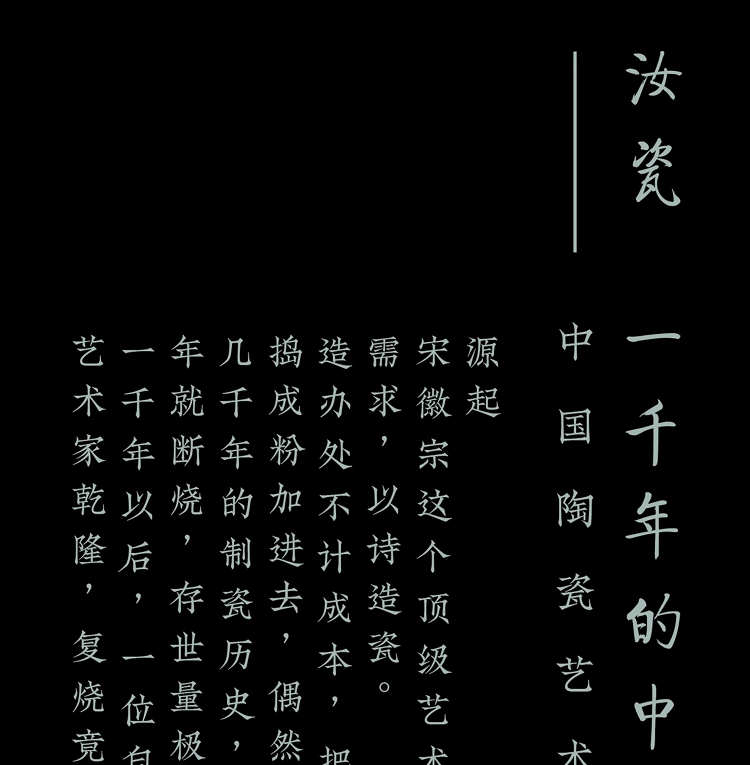 汝瓷
一千年的中
中国陶瓷艺术
源起
宋徽宗这个顶级艺术
需求，以诗造瓷。
造办处不计成本，把
捣成粉加进去，偶然
几千年的制瓷历史，
年就断烧，存世量极
一千年以后，一位自
艺术家乾隆，复烧竟